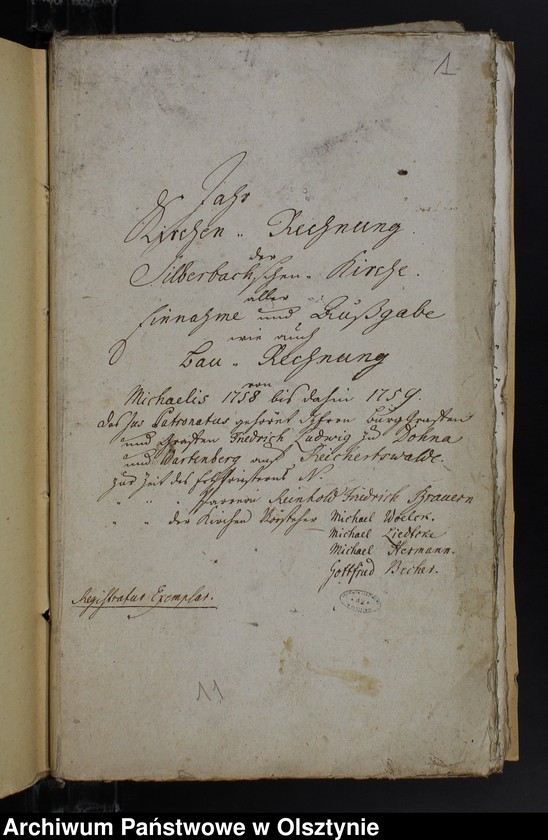 1
Jahr
Kirchen " Rechnung
der
Silberbachschen " Kirche.
aller
Einnahme und Außgabe
wie auch
Bau " Rechnung
von
Michaelis 1758 bis dahin 1759.
das Jus Patronatus gehöret Ihren Burggrafen
und Grafen Friedrich Ludwig zu Dohna
und Wartenberg auf Reichertswalde.
zur Zeit des N.
" " " Pfarrern Reinhold Friedrich Brauern
" " der Kirchen Vorsteher Michael Woelck.
Michael Liedtcke
Michael Hermann.
Gottfried Becher.
Registratur Exemplar.
11
Archiwum Państwowe w Olsztynie